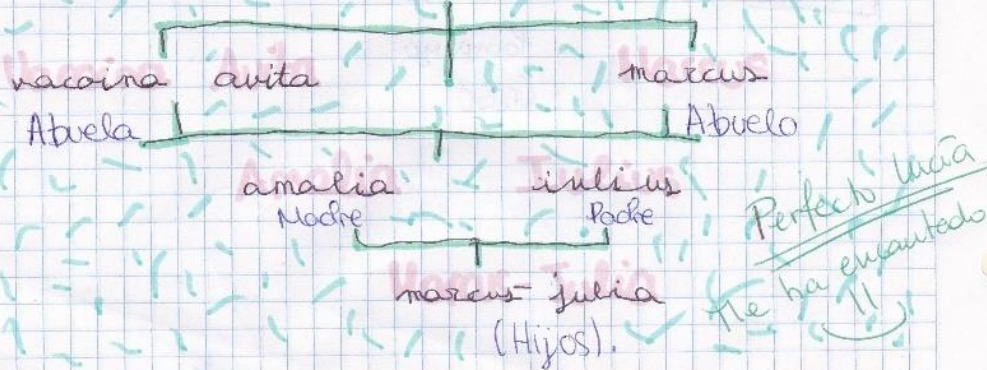 vacoina avita marcus
Abuela Abuelo
amalia iulius
Madre Padre
marcus- julia
(Hijos).
Perfecto Lucía
Me ha encantado